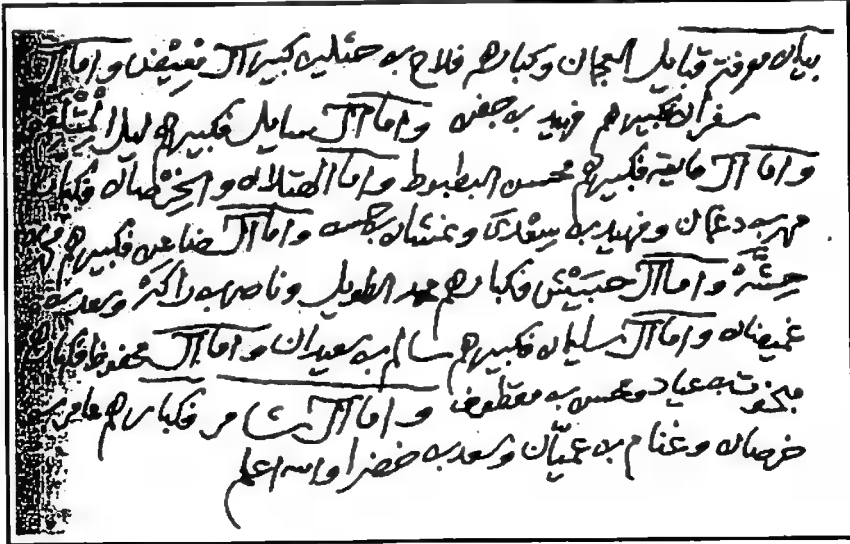 بيان معرفة قبايل العجمان وكبارهم فلاح بن حثلين كبير آل معيض واما آل
سفران فكبيرهم فهيد بن جفن واما آل سليمان فكبيرهم
واما آل فكبيرهم محسن البطبوط واما الهتلان والخرصان فكبار
مهر بن دغمان وفهيد بن سعدى وعنشان بن واما آل ضاعن فكبيرهم
حشة واما آل حبيش فكبارهم محمد الطويل وناصر بن راكة وسعد بن
غميضان واما آل سليمان فكبيرهم سالم بن سعيدان واما آل محفوظ فكبار
منخوت بن عياد ومحسن بن معطوف واما آل شامر فكبارهم عامر بن
خرصان وغنام بن عميان وسعد بن خضرا والله اعلم